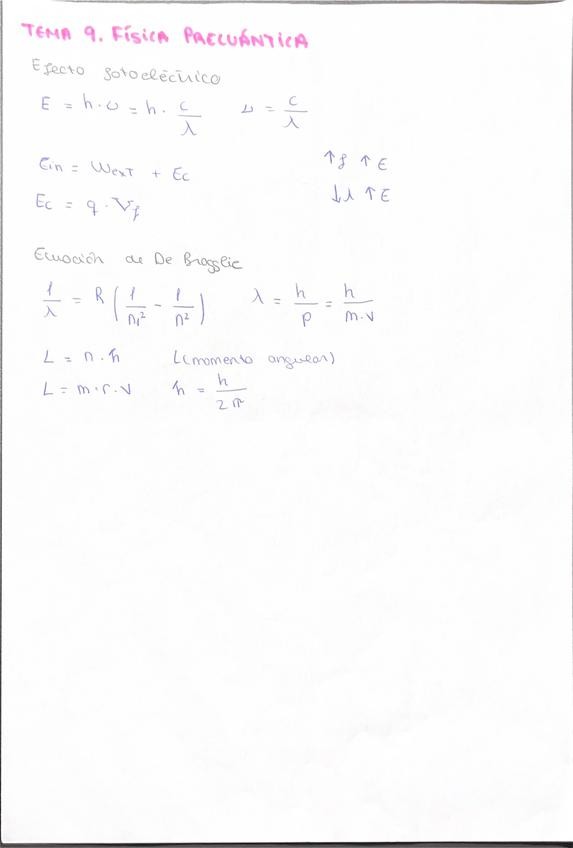 TEMA 9. FÍSICA PRECUÁNTICA
Efecto fotoeléctrico
E = h · υ = h · c/λ    υ = c/λ
Ein = Wext + Ec    ↑f ↑E
Ec = q · Vf    ↓λ ↑E
Ecuación de De Brogglie
1/λ = R (1/n1² - 1/n²)    λ = h/p = h/m·v
L = n · ħ    L(momento angular)
L = m · r · v    ħ = h/2π